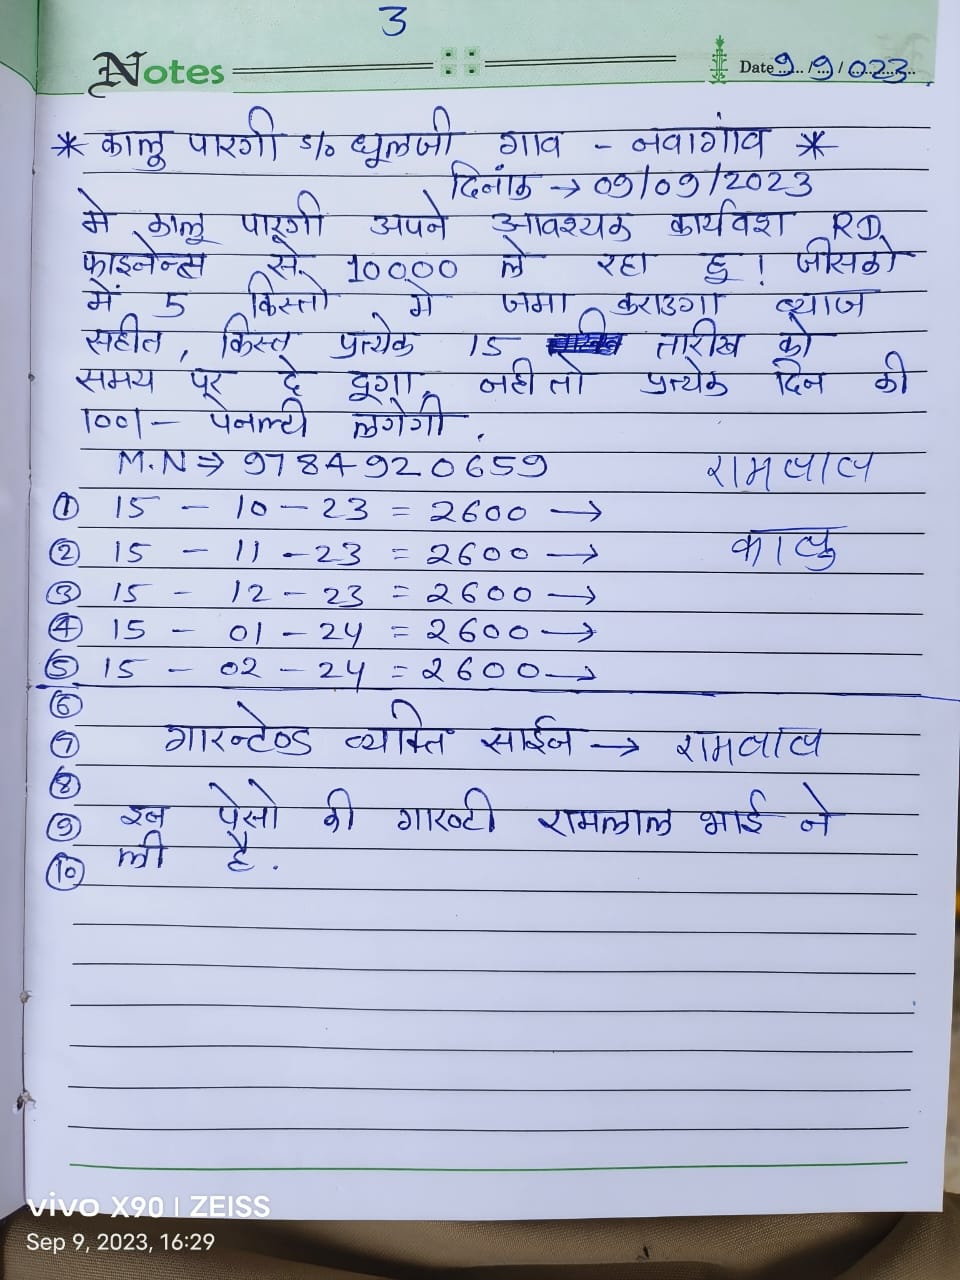 3
Notes
Date 9/9/023
* कालु पारगी s/o धूलजी गाव - नवागांव *
दिनांक → 09/09/2023
मे कालू पारगी अपने आवश्यक कार्यवश RD
फाइनेन्स से 10000 ले रहा हु ! जीसको
में 5 किस्तो मे जमा कराउगा ब्याज
सहीत, किस्त प्रत्येक 15 तारीख को
समय पर दे दूगा, नही तो प्रत्येक दिन की
100/- पेनल्टी लगेगी .
M.N ⇒ 9784920659 रामलाल
① 15 - 10 - 23 = 2600 →
② 15 - 11 - 23 = 2600 → कालु
③ 15 - 12 - 23 = 2600 →
④ 15 - 01 - 24 = 2600 →
⑤ 15 - 02 - 24 = 2600 →
⑥
⑦ गारन्टेण्ड व्यक्ति साईन → रामलाल
⑧
⑨ इन पेसो की गारण्टी रामलाल भाई ने
⑩ ली है .
vivo X90 | ZEISS
Sep 9, 2023, 16:29